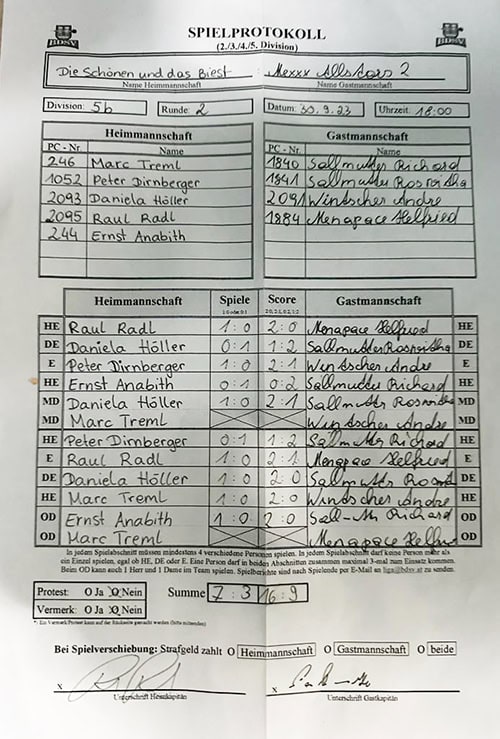 SPIELPROTOKOLL
(2./3./4./5. Division)
BDSV BDSV
Die Schönen und das Biest : Mexxx Allstars 2
Name Heimmannschaft Name Gastmannschaft
Division: 5b Runde: 2 Datum: 30.9.23 Uhrzeit: 18:00
Heimmannschaft Gastmannschaft
PC - Nr. Name PC - Nr. Name
246 Marc Treml 1840 Sallmutter Richard
1052 Peter Dirnberger 1841 Sallmutter Roswitha
2093 Daniela Höller 2091 Wintscher Andre
2095 Raul Radl 1884 Menapace Helfried
244 Ernst Anabith
Heimmannschaft Spiele Score Gastmannschaft
1:0 oder 0:1 2:0, 2:1, 0:2, 1:2
HE Raul Radl 1:0 2:0 Menapace Helfried HE
DE Daniela Höller 0:1 1:2 Sallmutter Roswitha DE
E Peter Dirnberger 1:0 2:1 Wintscher Andre E
HE Ernst Anabith 0:1 0:2 Sallmutter Richard HE
MD Daniela Höller 1:0 2:1 Sallmutter Roswitha MD
MD Marc Treml Wintscher Andre MD
HE Peter Dirnberger 0:1 1:2 Sallmutter Richard HE
E Raul Radl 1:0 2:1 Menapace Helfried E
DE Daniela Höller 1:0 2:0 Sallmutter DE
HE Marc Treml 1:0 2:0 Wintscher Andre HE
OD Ernst Anabith 1:0 2:0 Richard OD
OD Marc Treml Menapace OD
In jedem Spielabschnitt müssen mindestens 4 verschiedene Personen spielen. In jedem Spielabschnitt darf keine Person mehr als
ein Einzel spielen, egal ob HE, DE oder E. Eine Person darf in beiden Abschnitten zusammen maximal 3-mal zum Einsatz kommen.
Beim OD kann auch 1 Herr und 1 Dame im Team spielen. Spielberichte sind nach Spielende per E-Mail an liga@bdsv.at zu senden.
Protest: O Ja O Nein Summe 7 : 3 16 : 9
Vermerk: O Ja O Nein
*: Ein Vermerk/Protest kann auf der Rückseite gemacht werden (bitte mitsenden)
Bei Spielverschiebung: Strafgeld zahlt O Heimmannschaft O Gastmannschaft O beide
x x
Unterschrift Heimkapitän Unterschrift Gastkapitän